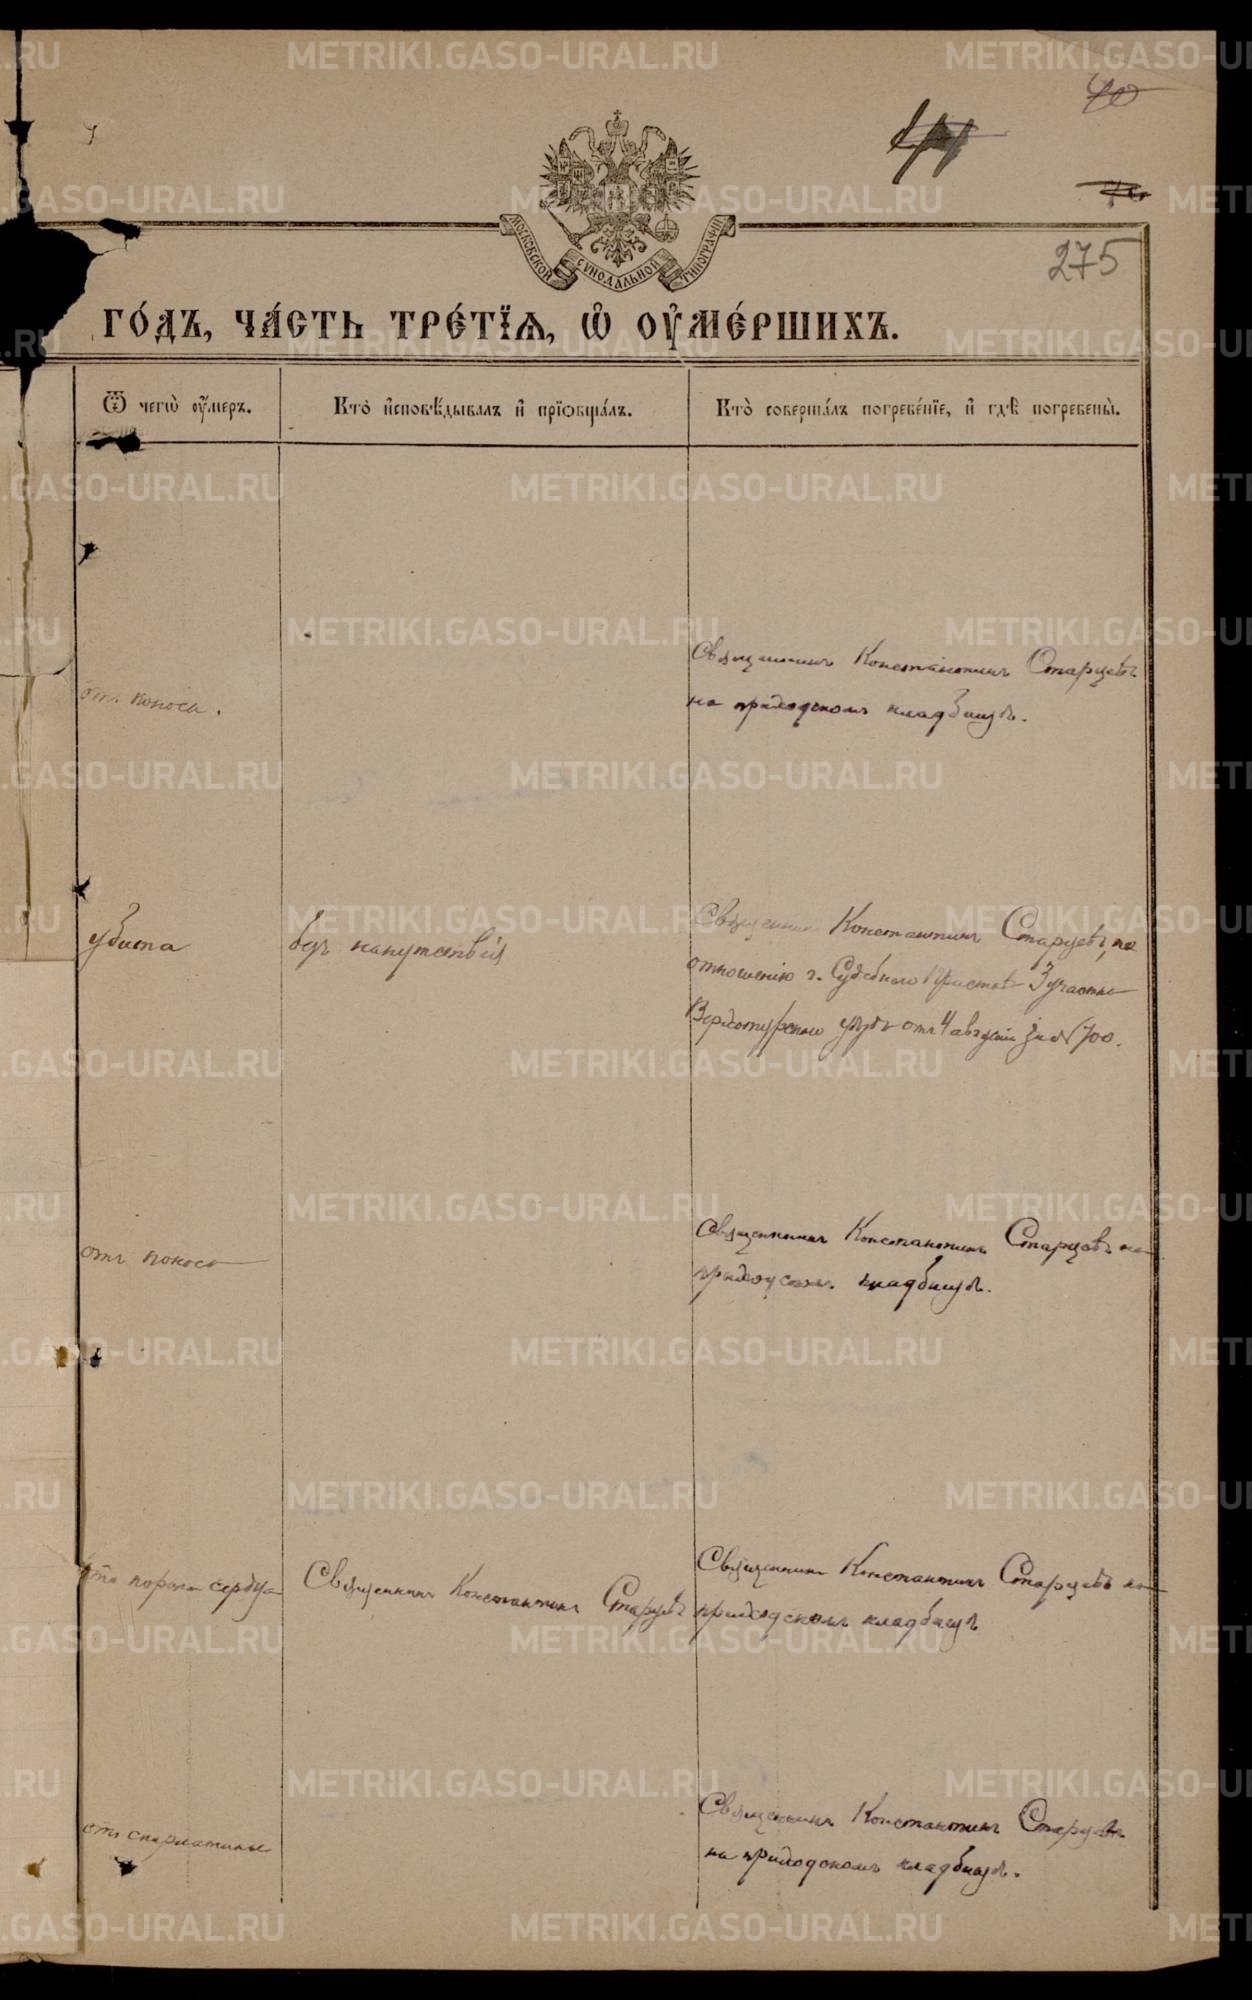 275
МОСКОВСКОЙ СѴНОДАЛЬНОЙ ТИПОГРАФІИ
ГО́ДЪ, ЧА́СТЬ ТРЕ́ТЇѦ, Ѡ҆ ОУ҆МЕ́РШИХЪ.
Ѿ чегѡ̀ оу҆́меръ.
Кто̀ и҆сповѣ́дывалъ и҆ прїѻбща́лъ.
Кто̀ соверша́лъ погребе́нїе, и҆ гдѣ̀ погребены̀.
отъ поноса.
Священникъ Константинъ Старцевъ
на приходскомъ кладбищѣ.
убита
безъ напутствія
Священникъ Константинъ Старцевъ, по
отношенію г. Судебнаго Пристава 3 участка
Верхотурскаго уѣзда отъ 4 августа за № 700.
отъ поноса
Священникъ Константинъ Старцевъ на
приходскомъ кладбищѣ.
отъ порока сердца
Священникъ Константинъ Старцевъ
Священникъ Константинъ Старцевъ на
приходскомъ кладбищѣ
отъ скарлатины
Священникъ Константинъ Старцевъ
на приходскомъ кладбищѣ.
METRIKI.GASO-URAL.RU